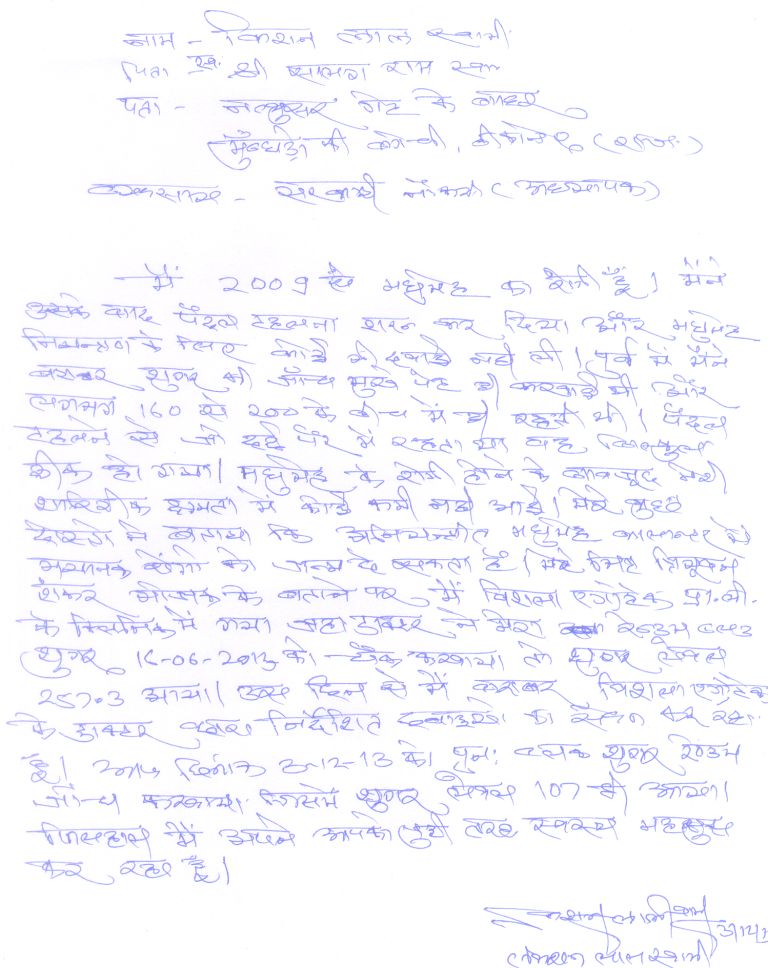 नाम - किशन लाल स्वामी
पिता स्व. श्री सालग राम स्वा
पता - नत्थुसर गेट के बाहर
की बगेची, बीकानेर (राज.)
व्यवसाय - सरकारी नौकरी (अध्यापक)
मैं 2009 से मधुमेह का रोगी हूँ। मैंने
उसके बाद पैदल टहलना शुरू कर दिया और मधुमेह
नियन्त्रण के लिए कोई भी दवाई नहीं ली। पूर्व में मैंने
बराबर शुगर की जाँच भुखे पेट ही करवाई थी और
लगभग 160 से 200 के बीच में ही रहती थी। पैदल
टहलने से जो दर्द पैर में रहता था वह बिल्कुल
ठीक हो गया। मधुमेह के रोगी होने के बावजूद मेरी
शारिरीक क्षमता में कोई कमी नहीं आई। मेरे कुछ
दोस्तो ने बताया कि अनियन्त्रीत मधुमेह कालान्तर में
भयानक रोगो को जन्म दे सकता है। मेरे मित्र
शंकर के बताने पर मैं विशाला एग्रोटेक प्रा.ली.
के क्लिनिक में गया जहा डाक्टर ने मेरा रेन्डम ब्लड
शुगर 16-06-2013 को चैक करवाया तो शुगर लेवल
257.3 आया। उस दिन से मैं बराबर विशाला एग्रोटेक
के डाक्टर द्वारा निर्देशित दवाइयो का सेवन कर रहा
हूँ। आज दिनांक 3-12-13 को पुनः ब्लड शुगर रेन्डम
जाँच करवाया जिसमे शुगर लेवल 107 ही आया।
फिलहाल मैं अपने आपको पुरी तरह स्वस्थ महसूस
कर रहा हूँ।
किशन लाल स्वामी